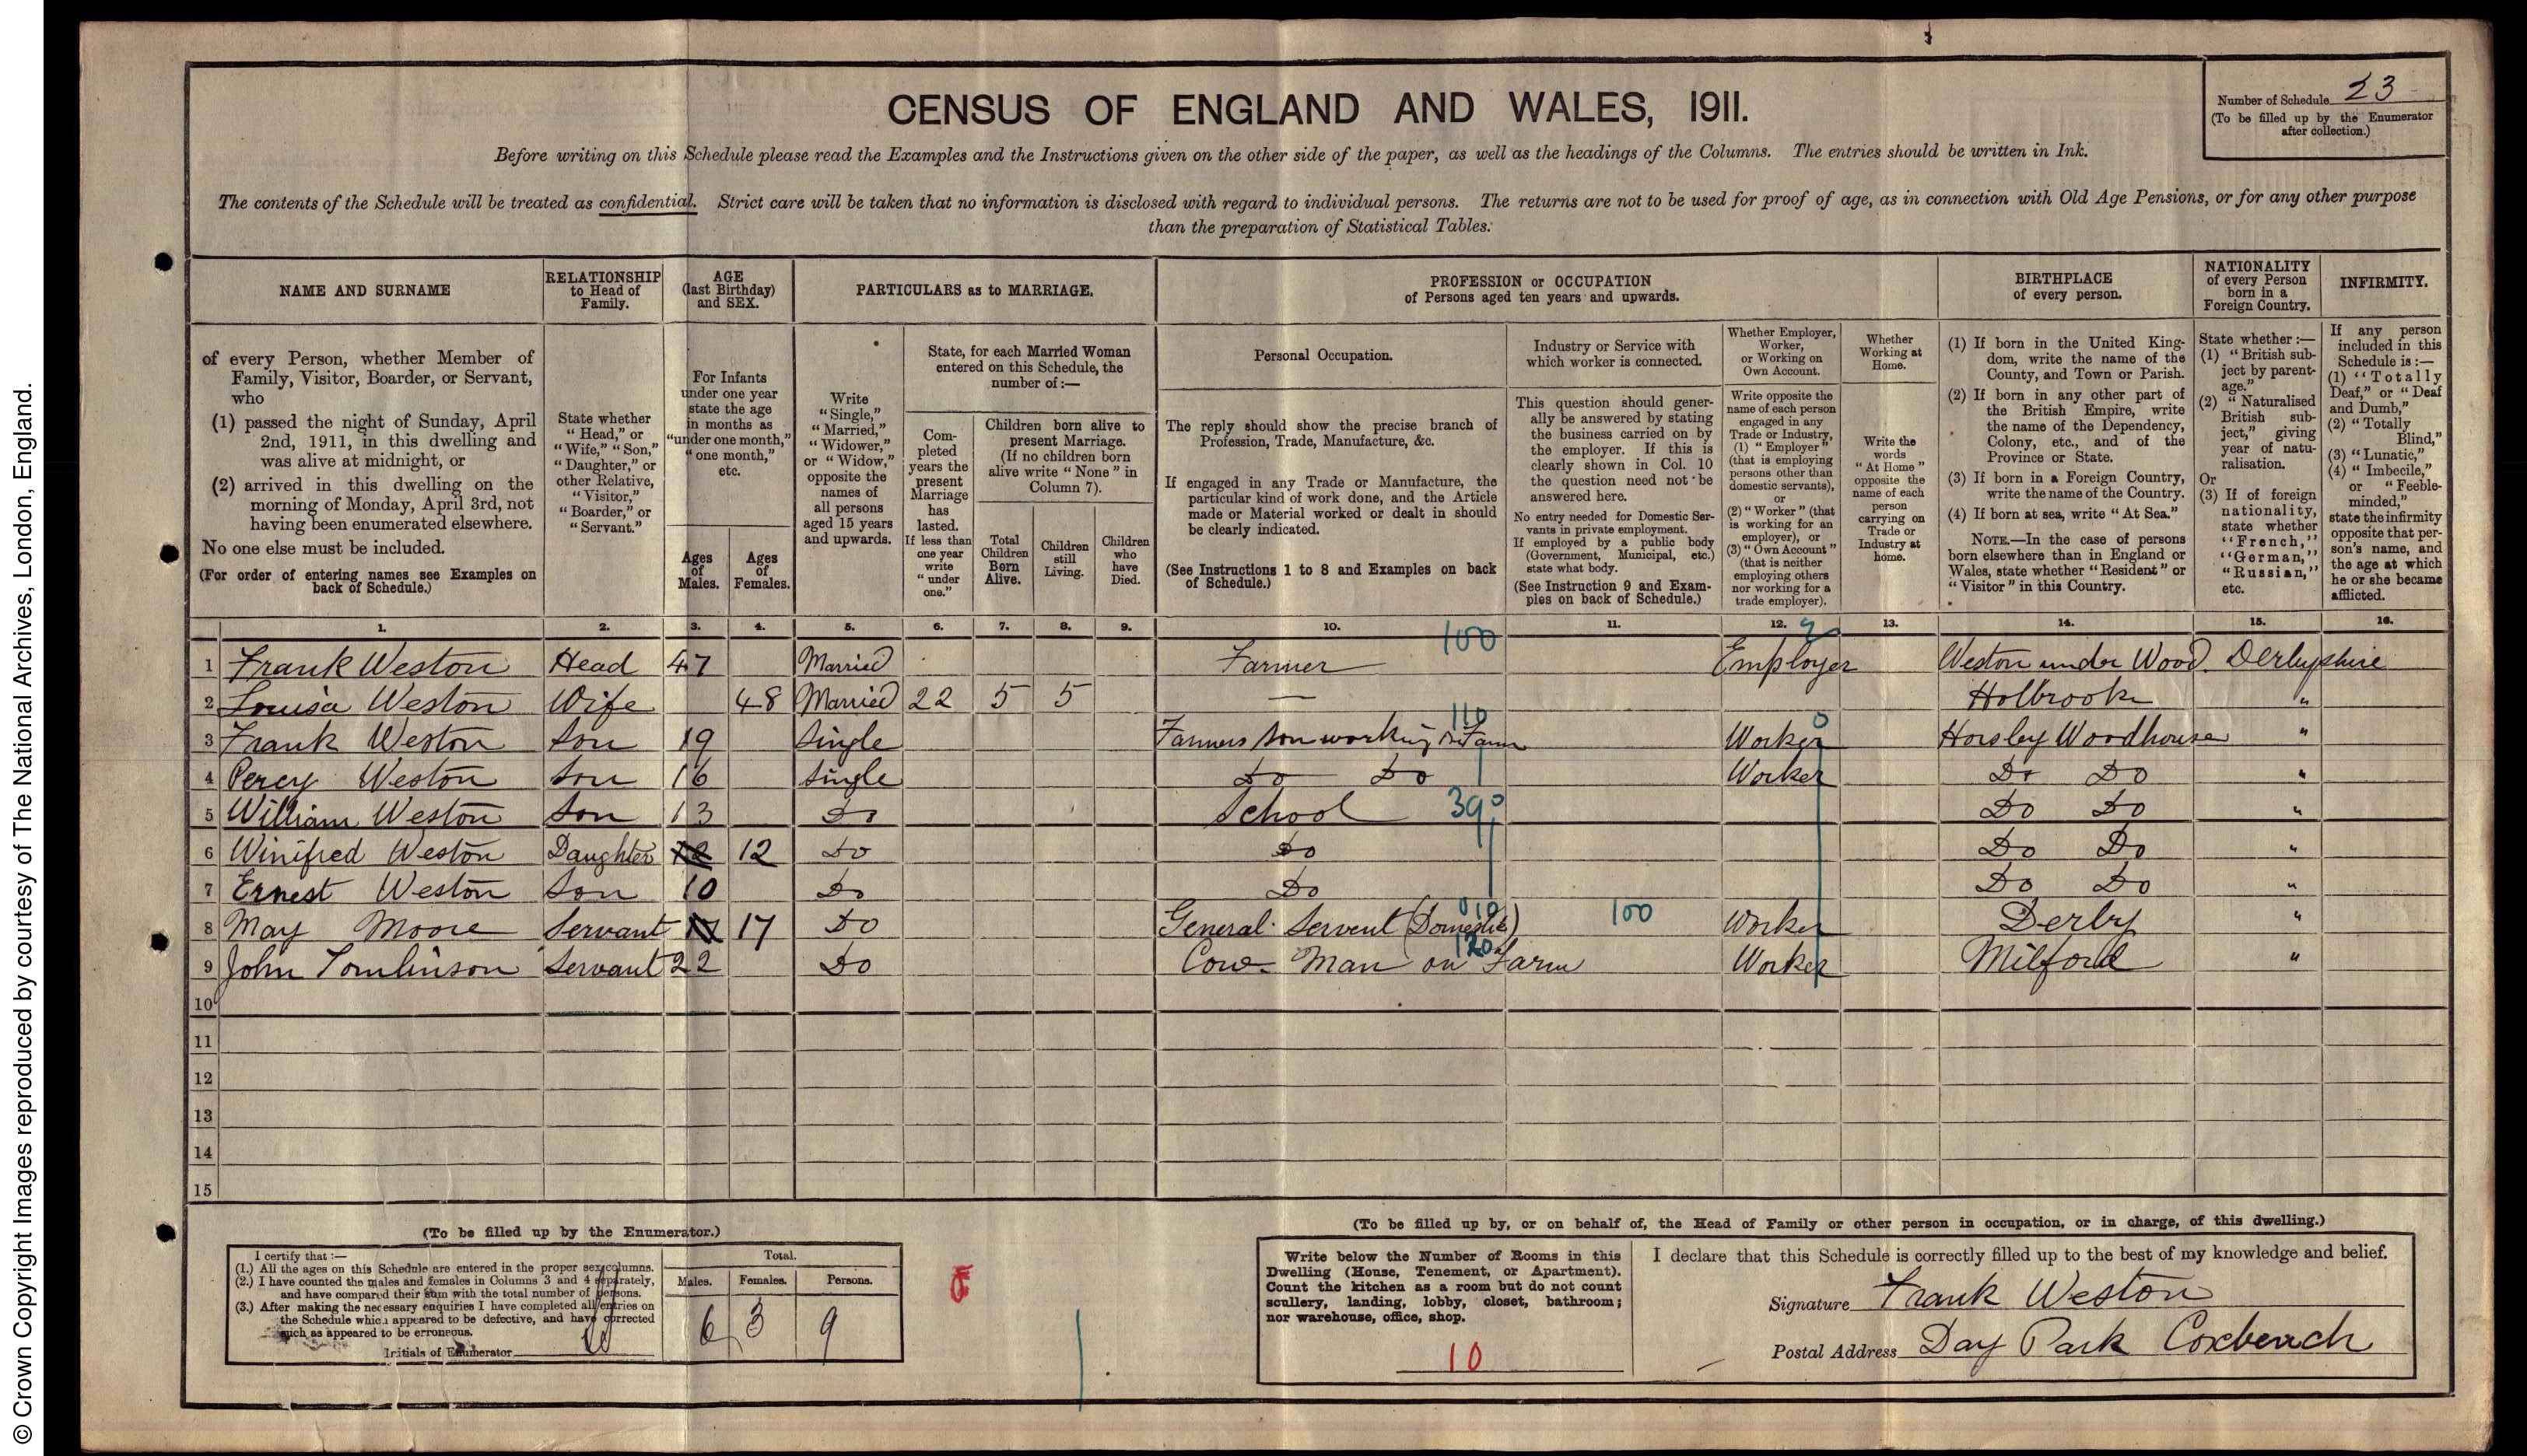 © Crown Copyright Images reproduced by courtesy of The National Archives, London, England.
CENSUS OF ENGLAND AND WALES, 1911.
Number of Schedule 23
(To be filled up by the Enumerator
after collection.)
Before writing on this Schedule please read the Examples and the Instructions given on the other side of the paper, as well as the headings of the Columns. The entries should be written in Ink.
The contents of the Schedule will be treated as confidential. Strict care will be taken that no information is disclosed with regard to individual persons. The returns are not to be used for proof of age, as in connection with Old Age Pensions, or for any other purpose
than the preparation of Statistical Tables.
NAME AND SURNAME
of every Person, whether Member of
Family, Visitor, Boarder, or Servant,
who
(1) passed the night of Sunday, April
2nd, 1911, in this dwelling and
was alive at midnight, or
(2) arrived in this dwelling on the
morning of Monday, April 3rd, not
having been enumerated elsewhere.
No one else must be included.
(For order of entering names see Examples on
back of Schedule.)
RELATIONSHIP
to Head of
Family.
State whether
"Head," or
"Wife," "Son,"
"Daughter," or
other Relative,
"Visitor,"
"Boarder," or
"Servant."
AGE
(last Birthday)
and SEX.
For Infants
under one year
state the age
in months as
"under one month,"
"one month,"
etc.
Ages
of
Males.
Ages
of
Females.
PARTICULARS as to MARRIAGE.
Write
"Single,"
"Married,"
"Widower,"
or "Widow,"
opposite the
names of
all persons
aged 15 years
and upwards.
State, for each Married Woman
entered on this Schedule, the
number of :—
Com-
pleted
years the
present
Marriage
has
lasted.
If less than
one year
write
"under
one."
Children born alive to
present Marriage.
(If no children born
alive write "None" in
Column 7).
Total
Children
Born
Alive.
Children
still
Living.
Children
who
have
Died.
PROFESSION or OCCUPATION
of Persons aged ten years and upwards.
Personal Occupation.
The reply should show the precise branch of
Profession, Trade, Manufacture, &c.
If engaged in any Trade or Manufacture, the
particular kind of work done, and the Article
made or Material worked or dealt in should
be clearly indicated.
(See Instructions 1 to 8 and Examples on back
of Schedule.)
Industry or Service with
which worker is connected.
This question should gener-
ally be answered by stating
the business carried on by
the employer. If this is
clearly shown in Col. 10
the question need not be
answered here.
No entry needed for Domestic Ser-
vants in private employment.
If employed by a public body
(Government, Municipal, etc.)
state what body.
(See Instruction 9 and Exam-
ples on back of Schedule.)
Whether Employer,
Worker,
or Working on
Own Account.
Write opposite the
name of each person
engaged in any
Trade or Industry,
(1) "Employer"
(that is employing
persons other than
domestic servants),
or
(2) "Worker" (that
is working for an
employer), or
(3) "Own Account"
(that is neither
employing others
nor working for a
trade employer).
Whether
Working at
Home.
Write the
words
"At Home"
opposite the
name of each
person
carrying on
Trade or
Industry at
home.
BIRTHPLACE
of every person.
(1) If born in the United King-
dom, write the name of the
County, and Town or Parish.
(2) If born in any other part of
the British Empire, write
the name of the Dependency,
Colony, etc., and of the
Province or State.
(3) If born in a Foreign Country,
write the name of the Country.
(4) If born at sea, write "At Sea."
NOTE.—In the case of persons
born elsewhere than in England or
Wales, state whether "Resident" or
"Visitor" in this Country.
NATIONALITY
of every Person
born in a
Foreign Country.
State whether :—
(1) "British sub-
ject by parent-
age."
(2) "Naturalised
British sub-
ject," giving
year of natu-
ralisation.
Or
(3) If of foreign
nationality,
state whether
"French,"
"German,"
"Russian,"
etc.
INFIRMITY.
If any person
included in this
Schedule is :—
(1) "Totally
Deaf," or "Deaf
and Dumb,"
(2) "Totally
Blind,"
(3) "Lunatic,"
(4) "Imbecile,"
or "Feeble-
minded,"
state the infirmity
opposite that per-
son's name, and
the age at which
he or she became
afflicted.
1. 2. 3. 4. 5. 6. 7. 8. 9. 10. 11. 12. 13. 14. 15. 16.
1 Frank Weston Head 47 Married Farmer 100 Employer Weston under Wood Derbyshire
2 Louisa Weston Wife 48 Married 22 5 5 — Holbrook "
3 Frank Weston Son 19 Single Farmers Son working on Farm 110 Worker Horsley Woodhouse "
4 Percy Weston Son 16 Single Do Do Worker Do Do "
5 William Weston Son 13 Do School 390 Do Do "
6 Winifred Weston Daughter 12 12 Do Do Do Do "
7 Ernest Weston Son 10 Do Do Do Do "
8 May Moore Servant 17 Do General Servent (Domestic) 010 100 Worker Derby "
9 John Tomlinson Servant 22 Do Cow Man on Farm 120 Worker Milford "
10
11
12
13
14
15
(To be filled up by the Enumerator.)
I certify that :—
(1.) All the ages on this Schedule are entered in the proper sex columns.
(2.) I have counted the males and females in Columns 3 and 4 separately,
and have compared their sum with the total number of persons.
(3.) After making the necessary enquiries I have completed all entries on
the Schedule which appeared to be defective, and have corrected
such as appeared to be erroneous.
Initials of Enumerator
Total.
Males. Females. Persons.
6 3 9
(To be filled up by, or on behalf of, the Head of Family or other person in occupation, or in charge, of this dwelling.)
Write below the Number of Rooms in this
Dwelling (House, Tenement, or Apartment).
Count the kitchen as a room but do not count
scullery, landing, lobby, closet, bathroom;
nor warehouse, office, shop.
10
I declare that this Schedule is correctly filled up to the best of my knowledge and belief.
Signature Frank Weston
Postal Address Day Park Coxbench